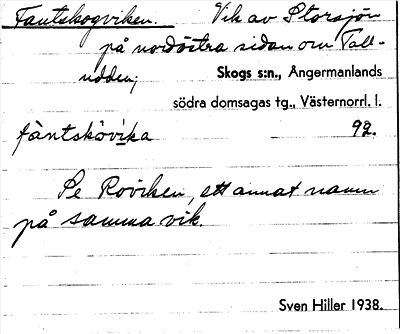 Fantskogviken. Vik av Storsjön
på nordöstra sidan om Tall-
udden,
Skogs s:n., Ångermanlands
södra domsagas tg., Västernorrl. l.
fàntskòvika 92.
Se Roviken, ett annat namn
på samma vik.
Sven Hiller 1938.